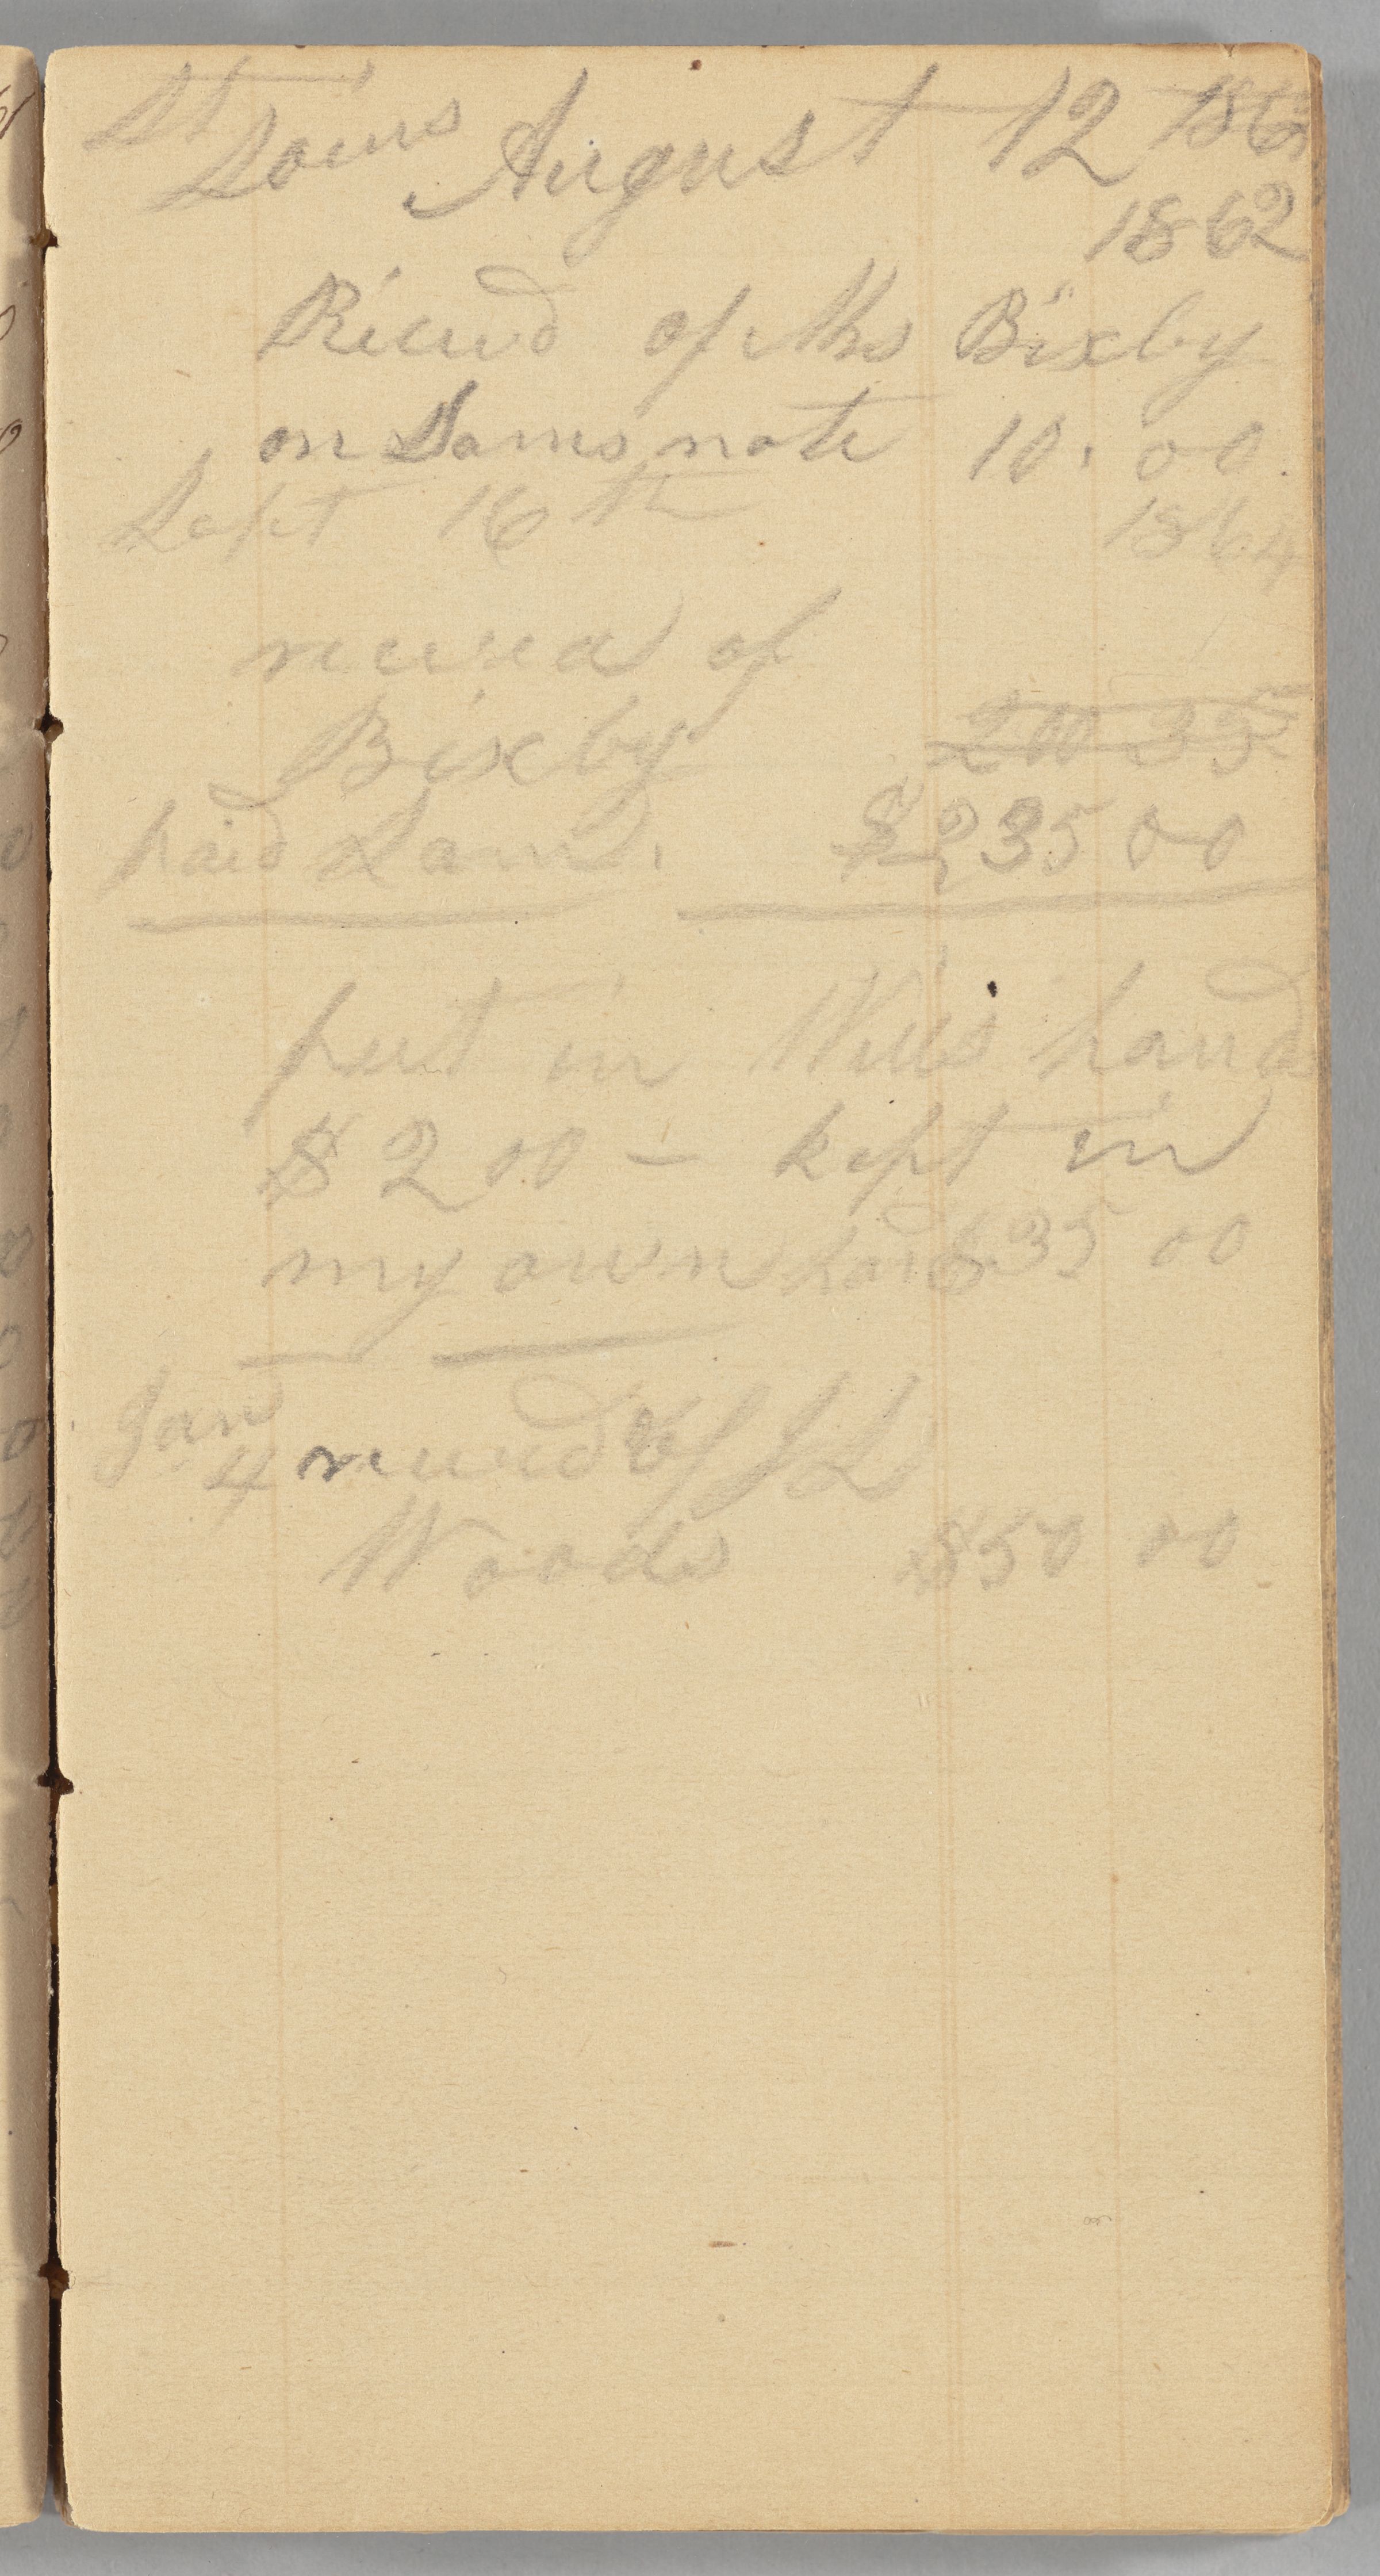 St Louis August 12 186
1862
Recievd of Mrs Bixby
on Sams note 10.00.
Sept 16th 1864
received of
Bixby 200 35
paid Sam. $235 00
put in Wills hand
$200 – kept in
my own hand $35 00
Jan
4 recievd of J L
Woods $50 00